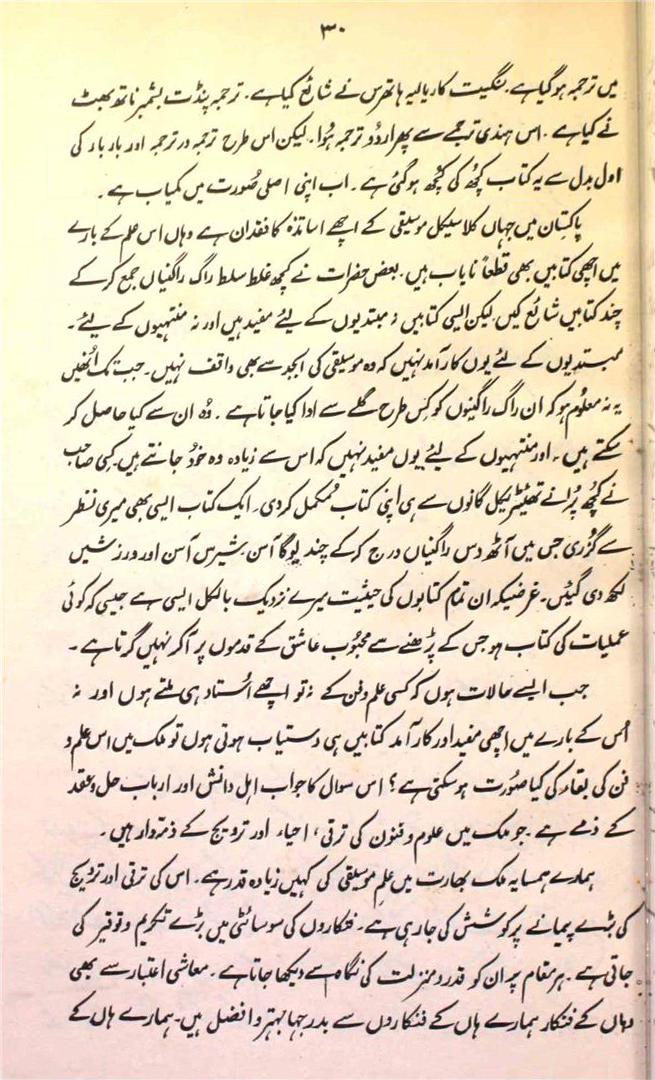 ۳۰
میں ترجمہ ہو گیا ہے۔ سنگیت کاریالیہ ہاتھرس نے شائع کیا ہے۔ ترجمہ پنڈت بشمبر ناتھ بھٹ
نے کیا ہے۔ اس ہندی ترجمے سے پھر اردُو ترجمہ ہُوا۔ لیکن اس طرح ترجمہ در ترجمہ اور بار بار کی
اول بدل سے یہ کتاب کچُھ کی کچُھ ہو گئی ہے۔ اب اپنی اصلی صُورت میں کمیاب ہے۔
پاکستان میں جہاں کلاسیکل موسیقی کے اچھے اساتذہ کا فقدان ہے وہاں اس علم کے بارے
میں اچھی کتابیں بھی قطعاً نایاب ہیں۔ بعض حضرات نے کچھ غلط سلط راگ راگنیاں جمع کر کے
چند کتابیں شائع کیں لیکن ایسی کتابیں نہ مبتدیوں کے لیئے مفید ہیں اور نہ منتہیوں کے لیئے۔
مبتدیوں کے لئے یوں کار آمد نہیں کہ وہ موسیقی کی ابجد سے بھی واقف نہیں۔ جب تک اُنھیں
یہ نہ معلُوم ہو کہ ان راگ راگنیوں کو کِس طرح گلے سے ادا کیا جاتا ہے۔ وُہ ان سے کیا حاصل کر
سکتے ہیں۔ اور منتہیوں کے لیئے یوں مفید نہیں کہ اس سے زیادہ وہ خودُ جانتے ہیں۔ کِسی صاحب
نے کچُھ پرُانے تھیٹریکل گانوں سے ہی اپنی کتاب مُکمل کر دی۔ ایک کتاب ایسی بھی میری نظر
سے گزُری جس میں آٹھ دس راگنیاں درج کر کے چند یوگا آسن۔ شیرس آسن اور ورزشیں
لکھ دی گئیں۔ غرضیکہ ان تمام کتابوں کی حیثیت میرے نزدیک بالکل ایسی ہے جیسی کہ کوئی
عملیات کی کتاب ہو جس کے پڑھنے سے محبُوب عاشق کے قدموں پر آ کر نہیں گرتا ہے۔
جب ایسے حالات ہوں کہ کسی علم و فن کے نہ تو اچھے اُستاد ہی ملتے ہوں اور نہ
اُس کے بارے میں اچھی مفید اور کار آمد کتابیں ہی دستیاب ہوتی ہوں تو ملک میں اس علم و
فن کی بقاء کی کیا صُورت ہو سکتی ہے؟ اس سوال کا جواب اہل دانش اور ارباب حل و عقد
کے ذمے ہے۔ جو ملک میں علوم و فنون کی ترقی، احیاء اور ترویج کے ذمّہ دار ہیں۔
ہمارے ہمسایہ ملک بھارت میں علمِ موسیقی کی کہیں زیادہ قدر ہے۔ اس کی ترقی اور ترویج
کی بڑے پیمانے پر کوشش کی جا رہی ہے۔ فنکاروں کی سوسائٹی میں بڑے تکریم و توقیر کی
جاتی ہے۔ ہر مقام پر ان کو قدر و منزلت کی نگاہ سے دیکھا جاتا ہے۔ معاشی اعتبار سے بھی
وہاں کے فنکار ہمارے ہاں کے فنکاروں سے بدرجہا بہتر و افضل ہیں۔ ہمارے ہاں کے